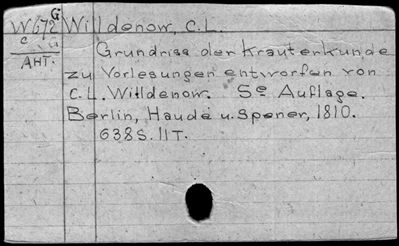 W672G Willdenow, C.L.
C G
AHT.
Grundriss der Krauterkunde
zu Vorlesungen entworfen von
C.L. Willdenow. 5e Auflage.
Berlin, Haude u. Spener, 1810.
638S. 11T.